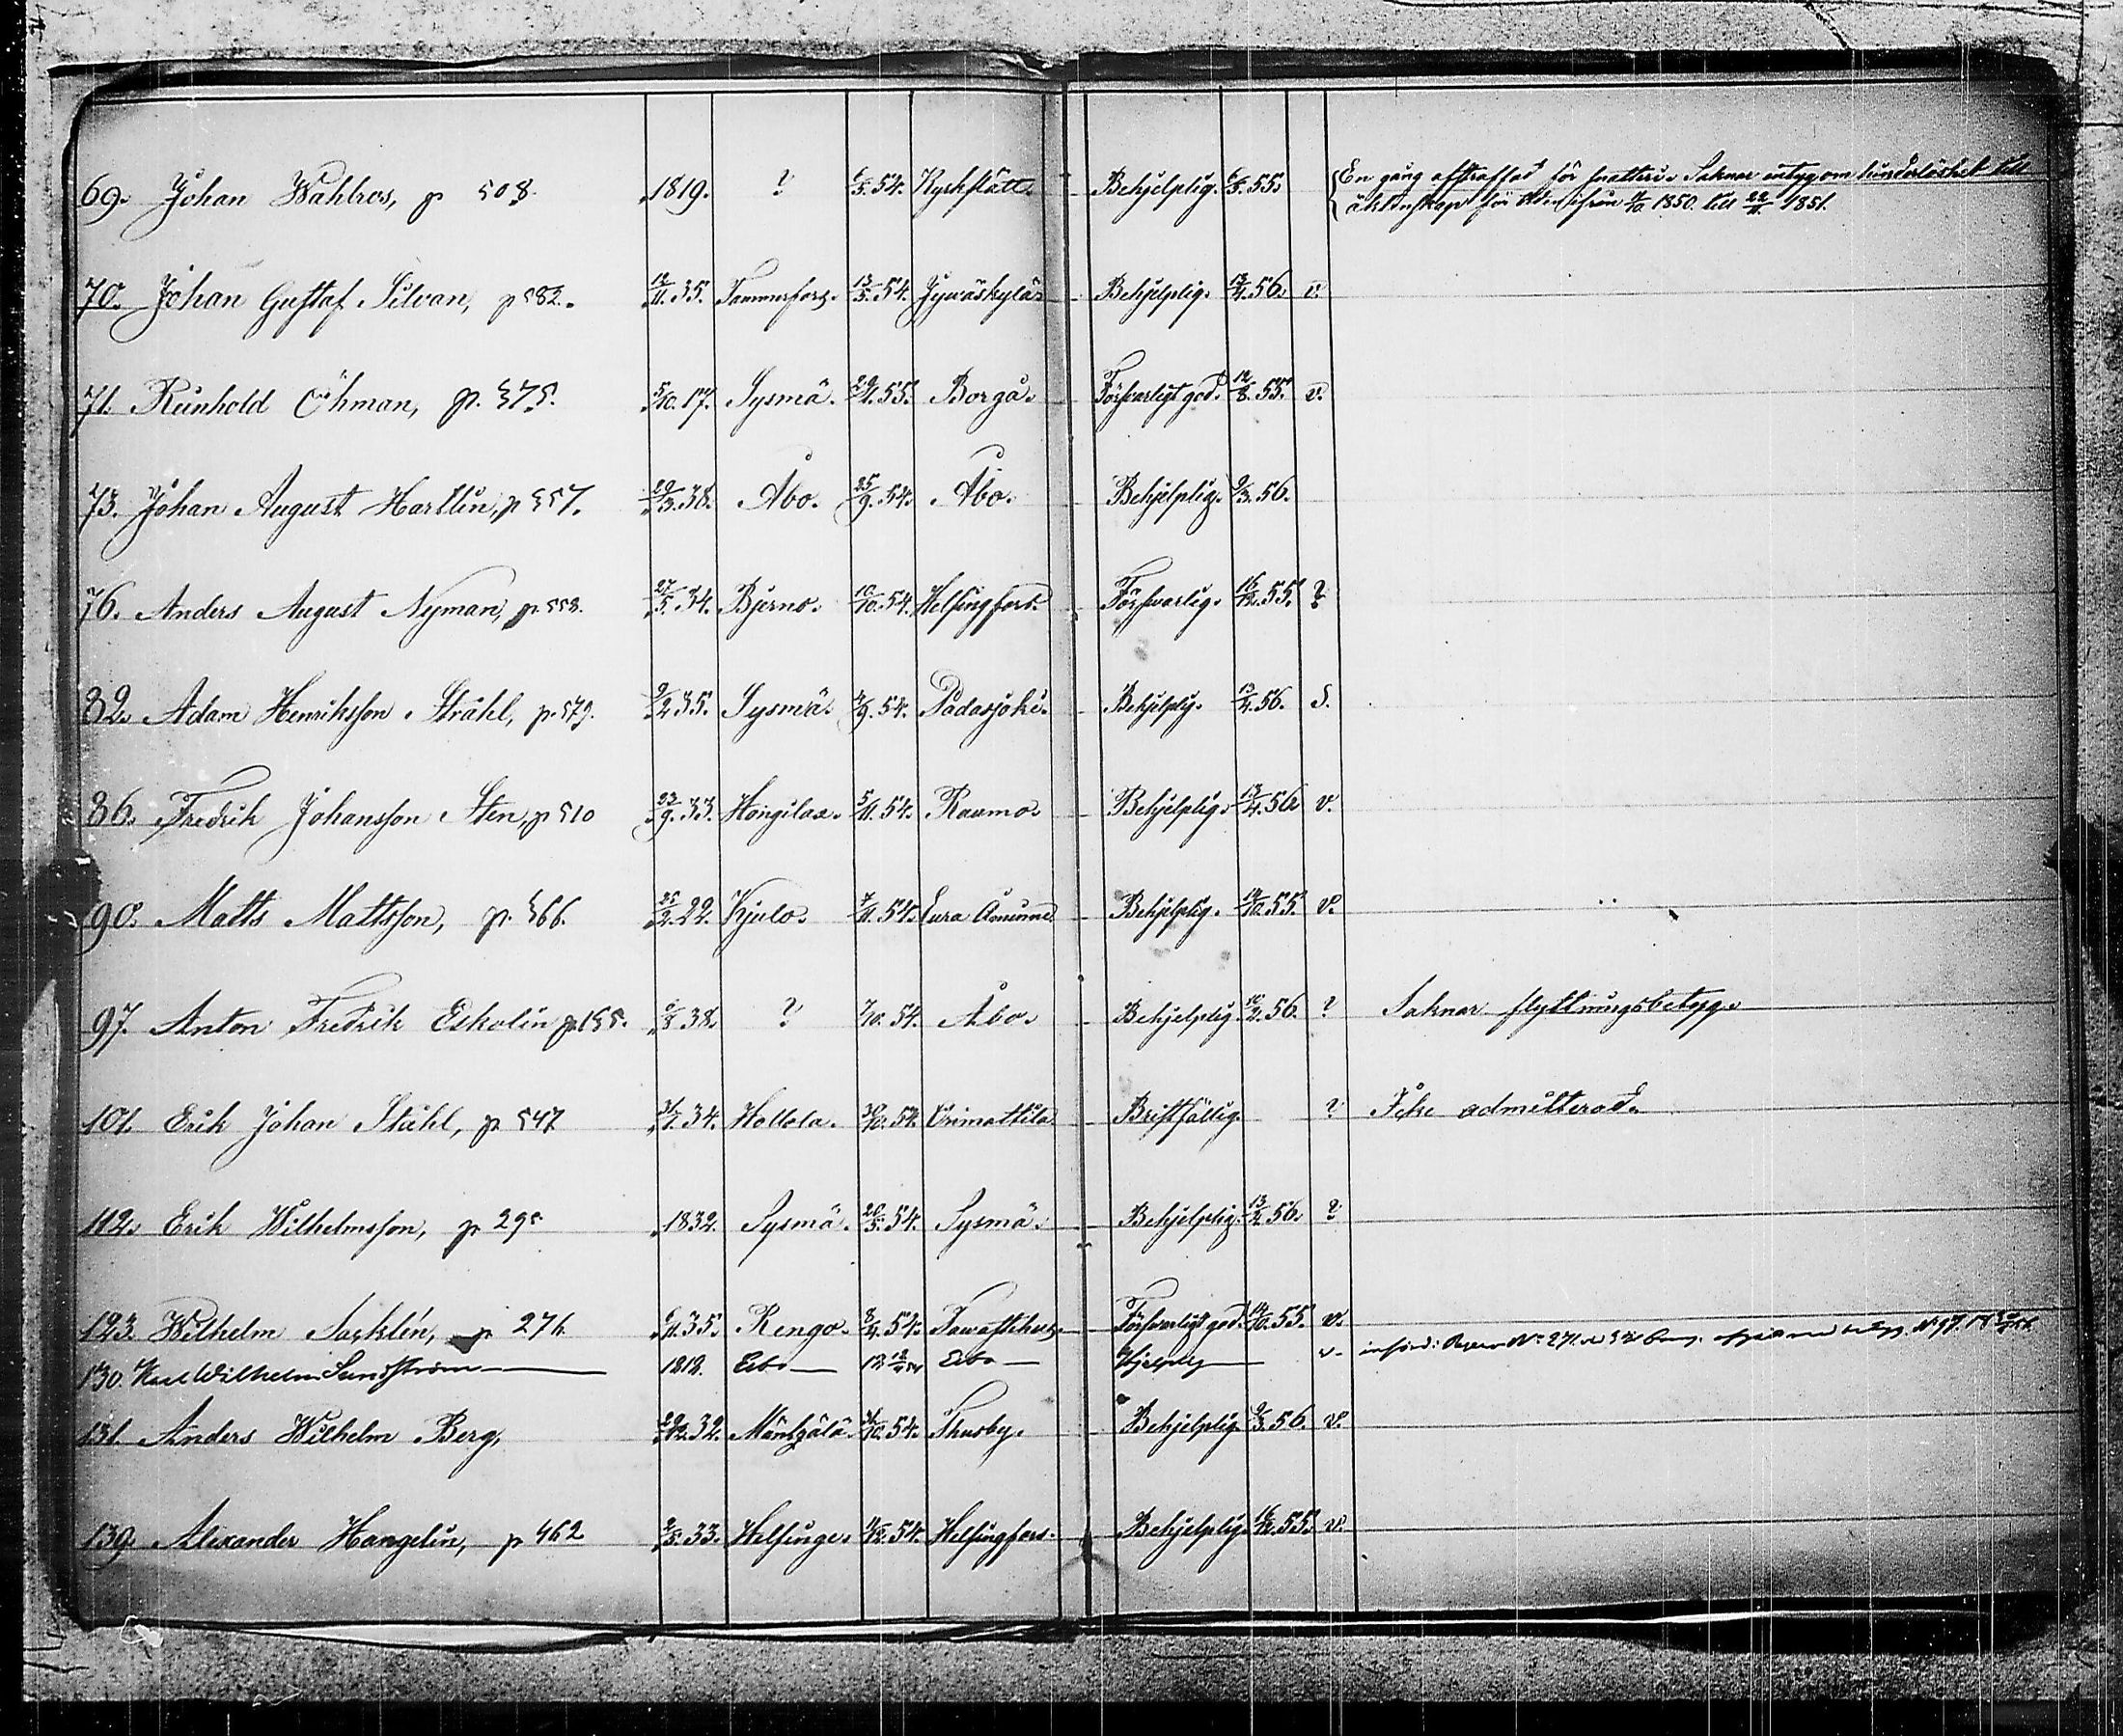 69. Johan Wahlros, p 508. 1819. ? 6/5. 54. Kyrkslätt. Behjelplig. 6/5. 55. En gång afstraffad för snatteri. Saknar intyg om hinderlöshet till
äktenskap för tiden ifrån 1850. till 22/11. 1851.
70. Johan Gustaf Silvan, p 582. 12/11. 35. Tammerfors. 13/5. 54. Jyväskylä. Behjelplig. 13/4. 56. v.
71. Reinhold Öhman, p. 575. 5/10. 17. Sysmä. 29/1. 55. Borgå. Försvarligt god. 12/8. 55. v.
73. Johan August Harllin, p 557. 29/3. 38. Åbo. 25/9. 54. Åbo. Behjelplig. 9/3. 56.
76. Anders August Nyman, p. 558. 27/5. 34. Bjerno. 10/10. 54. Helsingfors. Försvarlig. 16/12. 55. ?
82. Adam Henriksson Stråhl, p. 579. 9/2 35. Sysmä. 54. Padasjoki. Behjelplig. 13/4. 56. S.
86. Fredrik Johansson Sten, p 510 23/9. 33. Hongilax. 5/11. 54. Raumo. Behjelplig. 13/4. 56 v.
90. Matts Mattsson, p. 566. 25/2. 22. Kjulo. 7/11. 54. Eura Åminne Behjelplig. 14/10. 55. v.
97. Anton Fredrik Eskolin p. 155. 38. ? /10. 54. Åbo. Behjelplig. 10/2. 56. ? Saknar flyttningsbetyg.
101. Erik Johan Ståhl, p 547 31/7. 34. Hollola. 30/10. 54. Orimattila. Bristfällig. ? Icke admitterad.
112. Erik Wilhelmsson, p 295 1832. Sysmä. 20/5. 54. Sysmä. Behjelplig. 13/2. 56. ?
123. Wilhelm Sacklén, p 276 6/11. 35. Rengo. 54. Tawastehus. Försvarligt god. 14/10. 55. v.
130. Karl Wilhelm Sundström 1812. Esbo 54 Esbo Hjelplig v. No 271
131. Anders Wilhelm Berg, 29/12. 32. Mäntzälä. 31/10. 54. Thusby. Behjelplig. 9/3. 56. v.
139. Alexander Hangelin, p 462 2/5. 33. Helsinge. 4/12. 54. Helsingfors. Behjelplig. 16/12. 55. v.